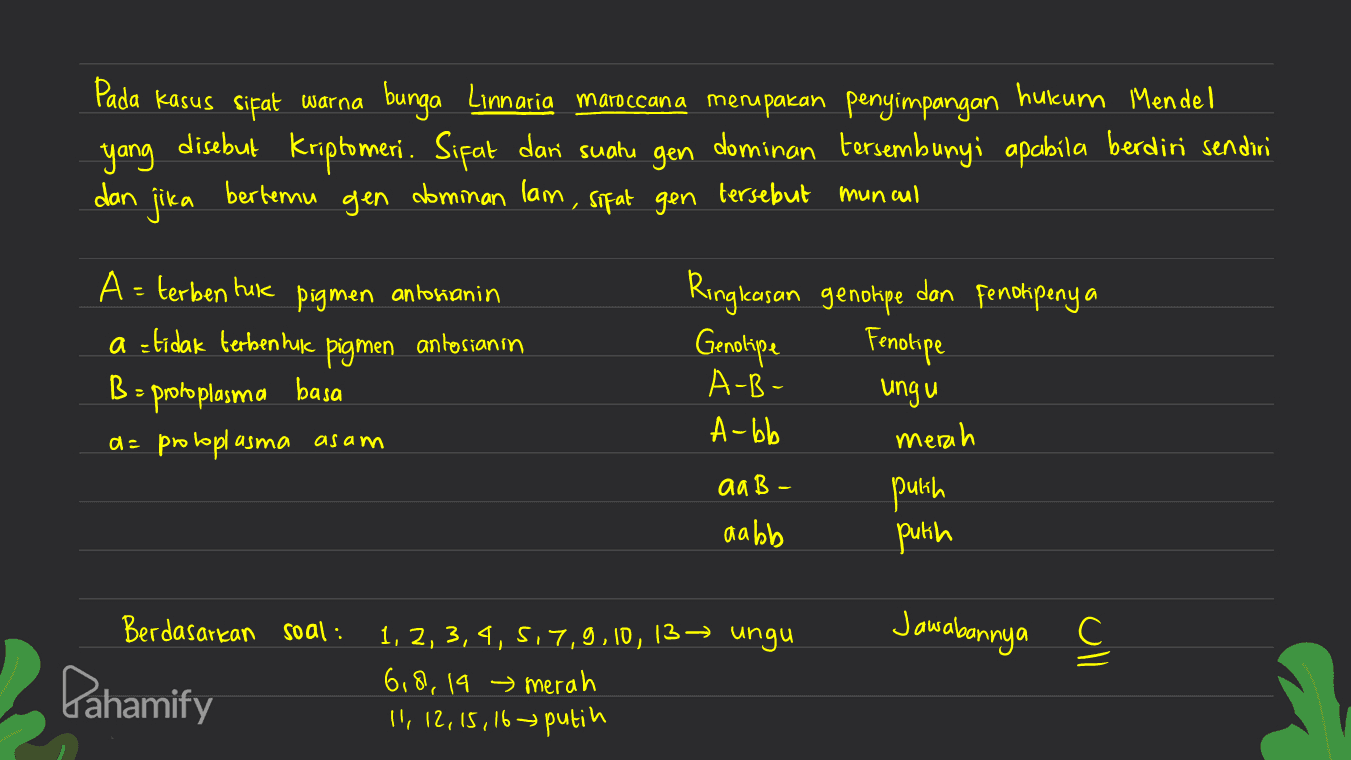 Pada kasus sifat warna bunga Linnaria maroccana merupakan penyimpangan hukum Mendel
yang disebut Kriptomeri. Sifat dari suatu gen dominan tersembunyi apabila berdiri sendiri
dan jika bertemu gen dominan lain, sifat gen tersebut muncul
A = terbentuk pigmen antosianin
a = tidak terbentuk pigmen antosianin
B = protoplasma basa
a = protoplasma asam
Ringkasan genotipe dan fenotipenya
Genotipe Fenotipe
A-B- ungu
A-bb merah
aaB- putih
aabb putih
Berdasarkan soal : 1, 2, 3, 4, 5, 7, 9, 10, 13 → ungu Jawabannya C
6, 8, 14 → merah
11, 12, 15, 16 → putih
Pahamify